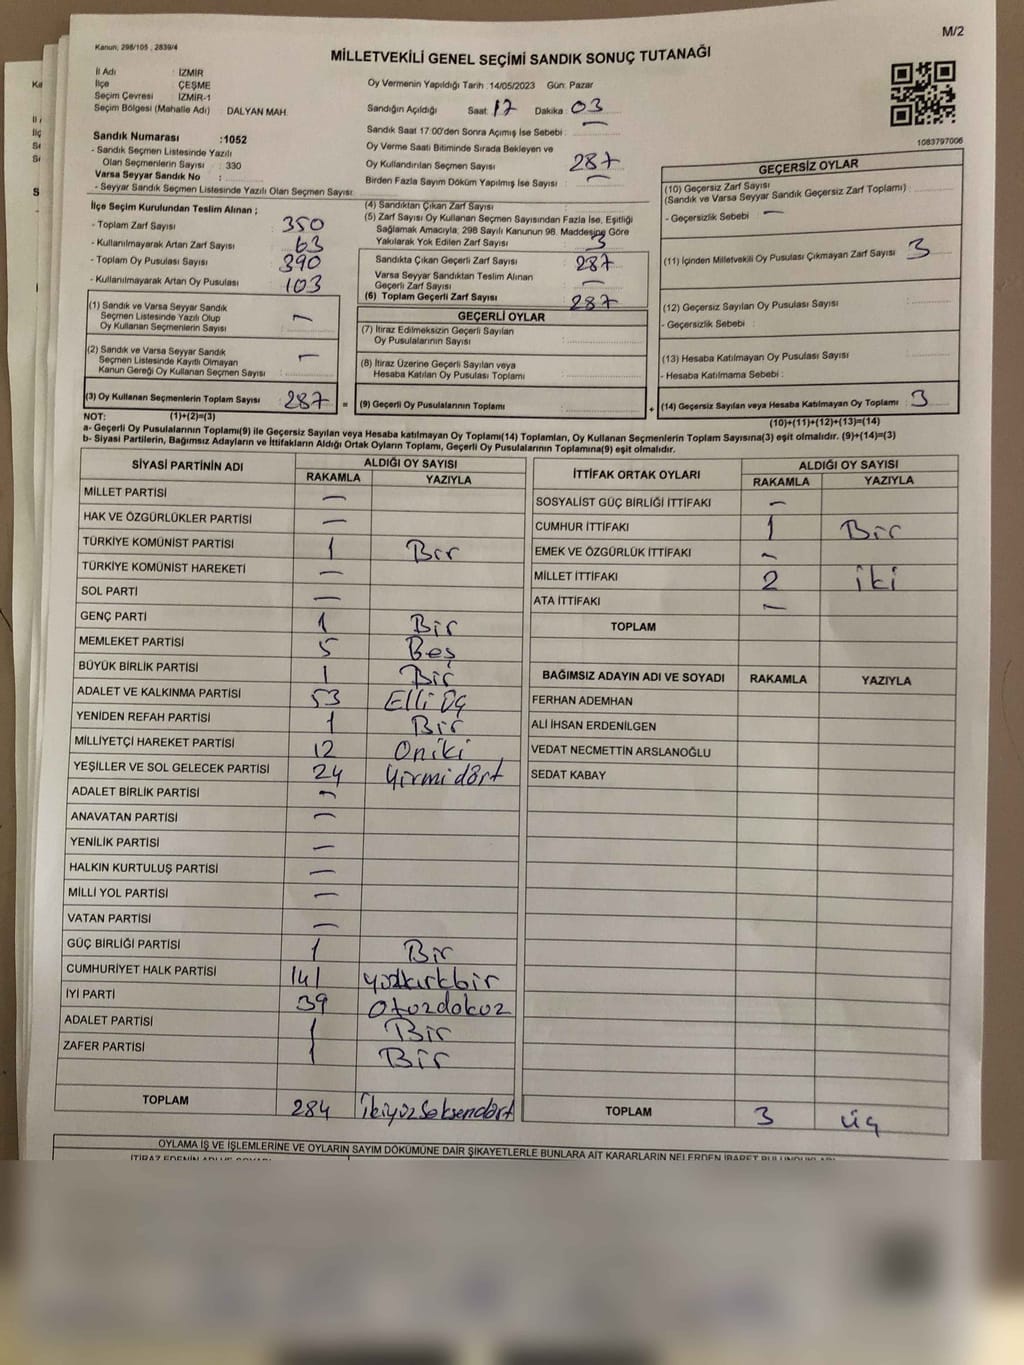 M/2
Kanun, 298/105 , 2839/4
MİLLETVEKİLİ GENEL SEÇİMİ SANDIK SONUÇ TUTANAĞI
İl Adı : İZMİR
İlçe : ÇEŞME
Seçim Çevresi : İZMİR-1
Seçim Bölgesi (Mahalle Adı) : DALYAN MAH.
Sandık Numarası :1052
- Sandık Seçmen Listesinde Yazılı
Olan Seçmenlerin Sayısı : 330
Varsa Seyyar Sandık No :
- Seyyar Sandık Seçmen Listesinde Yazılı Olan Seçmen Sayısı:
Oy Vermenin Yapıldığı Tarih :14/05/2023 Gün: Pazar
Sandığın Açıldığı Saat: 17 Dakika: 03
Sandık Saat 17:00'den Sonra Açımış İse Sebebi : —
Oy Verme Saati Bitiminde Sırada Bekleyen ve
Oy Kullandırılan Seçmen Sayısı 287
Birden Fazla Sayım Döküm Yapılmış İse Sayısı : —
1083797006
İlçe Seçim Kurulundan Teslim Alınan ;
- Toplam Zarf Sayısı : 350
- Kullanılmayarak Artan Zarf Sayısı : 63
- Toplam Oy Pusulası Sayısı : 390
- Kullanılmayarak Artan Oy Pusulası : 103
(1) Sandık ve Varsa Seyyar Sandık
Seçmen Listesinde Yazılı Olup
Oy Kullanan Seçmenlerin Sayısı : —
(2) Sandık ve Varsa Seyyar Sandık
Seçmen Listesinde Kayıtlı Olmayan
Kanun Gereği Oy Kullanan Seçmen Sayısı : —
(3) Oy Kullanan Seçmenlerin Toplam Sayısı : 287 =
(4) Sandıktan Çıkan Zarf Sayısı :
(5) Zarf Sayısı Oy Kullanan Seçmen Sayısından Fazla İse, Eşitliği
Sağlamak Amacıyla; 298 Sayılı Kanunun 98. Maddesine Göre
Yakılarak Yok Edilen Zarf Sayısı : 3
Sandıkta Çıkan Geçerli Zarf Sayısı : 287
Varsa Seyyar Sandıktan Teslim Alınan
Geçerli Zarf Sayısı : —
(6) Toplam Geçerli Zarf Sayısı : 287
GEÇERLİ OYLAR
(7) İtiraz Edilmeksizin Geçerli Sayılan
Oy Pusulalarının Sayısı :
(8) İtiraz Üzerine Geçerli Sayılan veya
Hesaba Katılan Oy Pusulası Toplamı :
(9) Geçerli Oy Pusulalarının Toplamı : +
GEÇERSİZ OYLAR
(10) Geçersiz Zarf Sayısı
(Sandık ve Varsa Seyyar Sandık Geçersiz Zarf Toplamı) :
- Geçersizlik Sebebi : —
(11) İçinden Milletvekili Oy Pusulası Çıkmayan Zarf Sayısı : 3
(12) Geçersiz Sayılan Oy Pusulası Sayısı :
- Geçersizlik Sebebi :
(13) Hesaba Katılmayan Oy Pusulası Sayısı :
- Hesaba Katılmama Sebebi :
(14) Geçersiz Sayılan veya Hesaba Katılmayan Oy Toplamı : 3
NOT: (1)+(2)=(3) (10)+(11)+(12)+(13)=(14)
a- Geçerli Oy Pusulalarının Toplamı(9) ile Geçersiz Sayılan veya Hesaba katılmayan Oy Toplamı(14) Toplamları, Oy Kullanan Seçmenlerin Toplam Sayısına(3) eşit olmalıdır. (9)+(14)=(3)
b- Siyasi Partilerin, Bağımsız Adayların ve İttifakların Aldığı Ortak Oyların Toplamı, Geçerli Oy Pusulalarının Toplamına(9) eşit olmalıdır.
SİYASİ PARTİNİN ADI ALDIĞI OY SAYISI
RAKAMLA YAZIYLA
MİLLET PARTİSİ —
HAK VE ÖZGÜRLÜKLER PARTİSİ —
TÜRKİYE KOMÜNİST PARTİSİ 1 Bir
TÜRKİYE KOMÜNİST HAREKETİ —
SOL PARTİ —
GENÇ PARTİ 1 Bir
MEMLEKET PARTİSİ 5 Beş
BÜYÜK BİRLİK PARTİSİ 1 Bir
ADALET VE KALKINMA PARTİSİ 53 Elli Üç
YENİDEN REFAH PARTİSİ 1 Bir
MİLLİYETÇİ HAREKET PARTİSİ 12 Oniki
YEŞİLLER VE SOL GELECEK PARTİSİ 24 Yirmidört
ADALET BİRLİK PARTİSİ —
ANAVATAN PARTİSİ —
YENİLİK PARTİSİ —
HALKIN KURTULUŞ PARTİSİ —
MİLLİ YOL PARTİSİ —
VATAN PARTİSİ —
GÜÇ BİRLİĞİ PARTİSİ 1 Bir
CUMHURİYET HALK PARTİSİ 141 yüzkırkbir
İYİ PARTİ 39 Otuzdokuz
ADALET PARTİSİ 1 Bir
ZAFER PARTİSİ 1 Bir
TOPLAM 284 İkiyüzSeksendört
İTTİFAK ORTAK OYLARI ALDIĞI OY SAYISI
RAKAMLA YAZIYLA
SOSYALİST GÜÇ BİRLİĞİ İTTİFAKI —
CUMHUR İTTİFAKI 1 Bir
EMEK VE ÖZGÜRLÜK İTTİFAKI —
MİLLET İTTİFAKI 2 iki
ATA İTTİFAKI —
TOPLAM
BAĞIMSIZ ADAYIN ADI VE SOYADI RAKAMLA YAZIYLA
FERHAN ADEMHAN
ALİ İHSAN ERDENİLGEN
VEDAT NECMETTİN ARSLANOĞLU
SEDAT KABAY
TOPLAM 3 üç
OYLAMA İŞ VE İŞLEMLERİNE VE OYLARIN SAYIM DÖKÜMÜNE DAİR ŞİKAYETLERLE BUNLARA AİT KARARLARIN NELERDEN İBARET BULUNDUKLARI